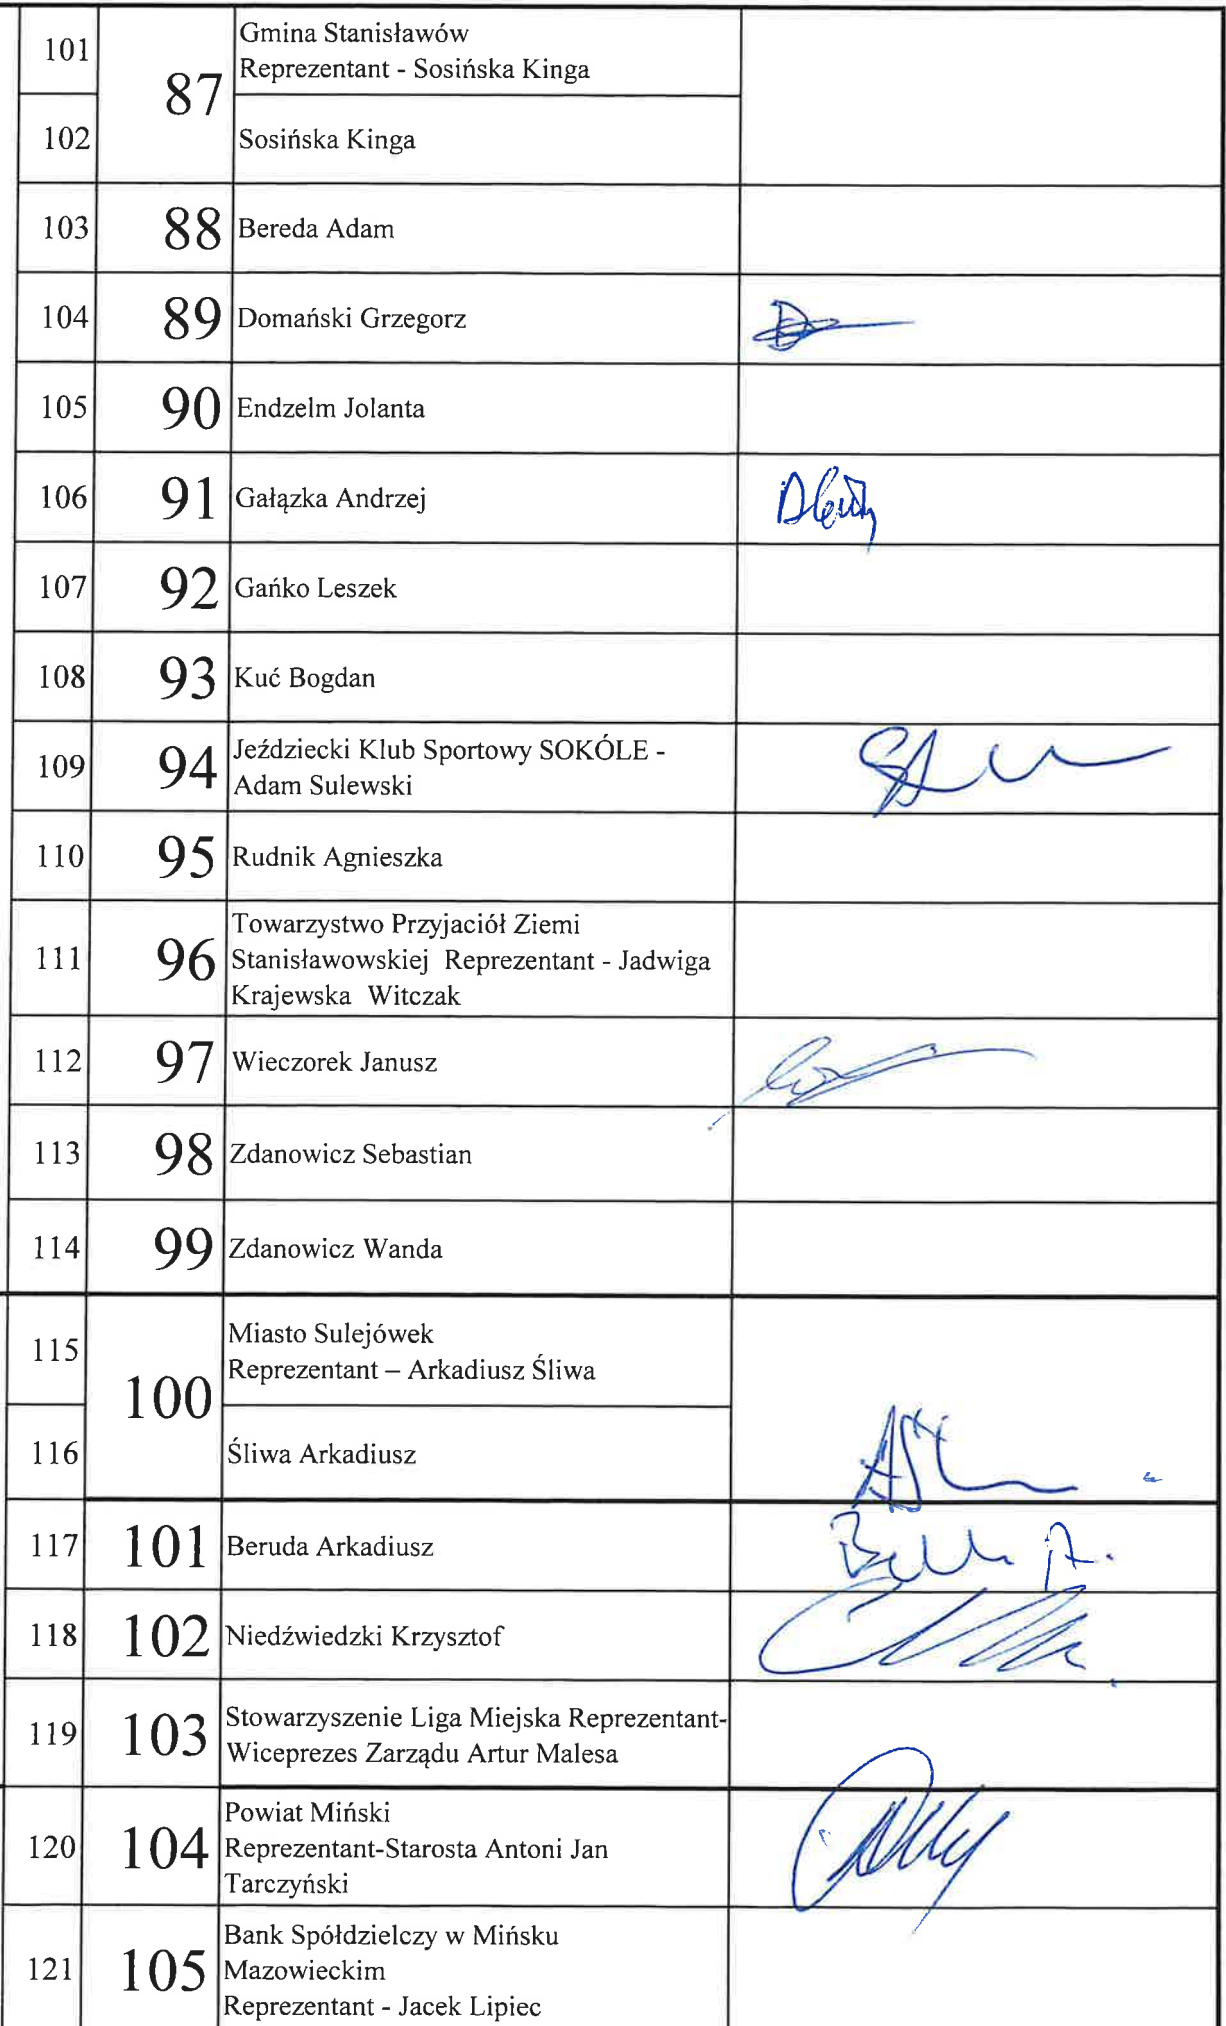 101
87
Gmina Stanisławów
Reprezentant - Sosińska Kinga
102
Sosińska Kinga
103 88 Bereda Adam
104 89 Domański Grzegorz
105 90 Endzelm Jolanta
106 91 Gałązka Andrzej
107 92 Gańko Leszek
108 93 Kuć Bogdan
109 94 Jeździecki Klub Sportowy SOKÓLE -
Adam Sulewski
110 95 Rudnik Agnieszka
111 96 Towarzystwo Przyjaciół Ziemi
Stanisławowskiej Reprezentant - Jadwiga
Krajewska Witczak
112 97 Wieczorek Janusz
113 98 Zdanowicz Sebastian
114 99 Zdanowicz Wanda
115
100
Miasto Sulejówek
Reprezentant – Arkadiusz Śliwa
116
Śliwa Arkadiusz
117 101 Beruda Arkadiusz
118 102 Niedźwiedzki Krzysztof
119 103 Stowarzyszenie Liga Miejska Reprezentant-
Wiceprezes Zarządu Artur Malesa
120 104 Powiat Miński
Reprezentant-Starosta Antoni Jan
Tarczyński
121 105 Bank Spółdzielczy w Mińsku
Mazowieckim
Reprezentant - Jacek Lipiec